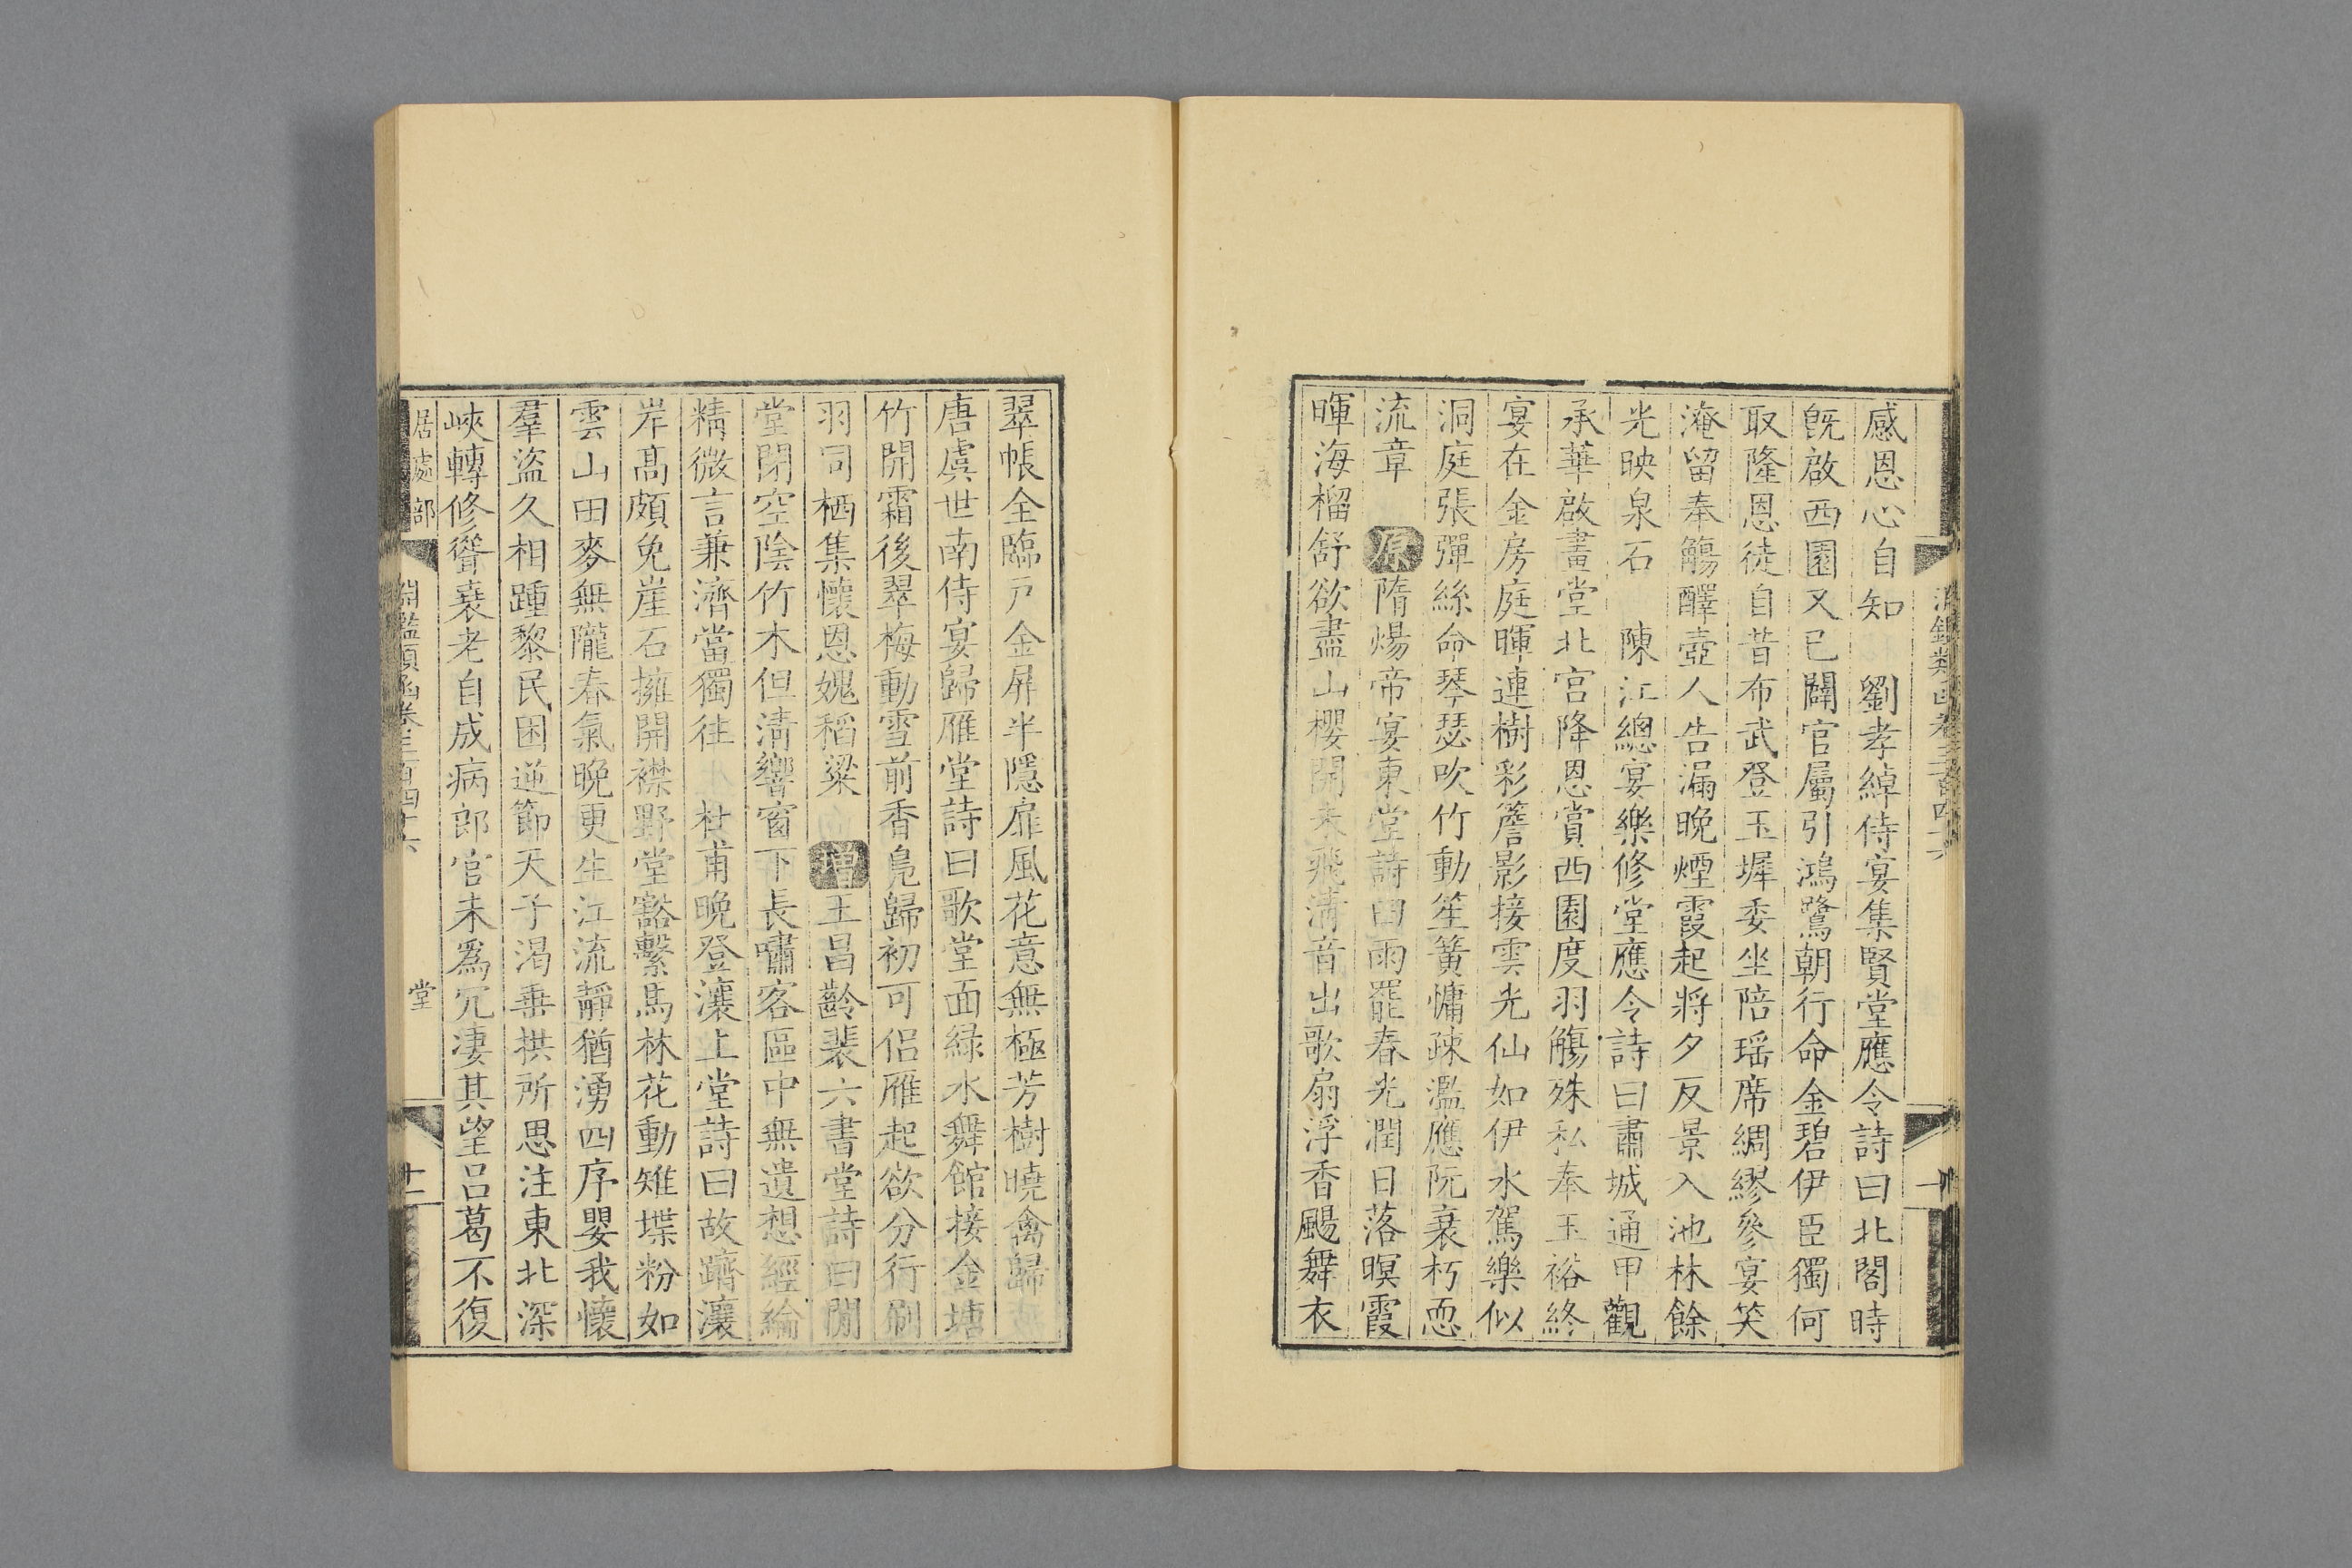 感恩心自知　劉孝綽侍宴集賢堂應令詩曰北閣時
旣啟西園又已闢官屬引鴻鷺朝行命金碧伊臣獨何
取隆恩徒自昔布武登玉墀委坐陪瑶席綢繆參宴笑
淹留奉觴醳壺人告漏晚煙霞起將夕反景入池林餘
光映泉石　陳江總宴樂修堂應令詩曰肅城通甲觀
承華啟畫堂北宮降恩賞西園度羽觴殊私奉玉裕終
宴在金房庭暉連樹彩簷影接雲光仙如伊水駕樂似
洞庭張彈絲命琴瑟吹竹動笙簧慵疎濫應阮衰朽恧
流章　原隋煬帝宴東堂詩曰雨罷春光潤日落暝霞
暉海榴舒欲盡山櫻開未飛清音出歌扇浮香颺舞衣
翠帳全臨戸金屏半隱扉風花意無極芳樹曉禽歸
唐虞世南侍宴歸雁堂詩曰歌堂面緑水舞館接金塘
竹開霜後翠梅動雪前香鳧歸初可侣雁起欲分行刷
羽同栖集懷恩媿稻粱　増王昌齡裴六書堂詩曰閒
堂閉空陰竹木但清響窗下長嘯客區中無遺想經綸
精微言兼濟當獨往　杜甫晚登瀼上堂詩曰故躋瀼
岸髙頗免崖石擁開襟野堂豁繫馬林花動雉堞粉如
雲山田麥無隴春氣晚更生江流靜猶湧四序嬰我懷
羣盜久相踵黎民困逆節天子渴垂拱所思注東北深
峽轉修聳衰老自成病郎官未爲冗淒其望吕葛不復
居處部
淵鑑類函卷三百四十六
堂
十一